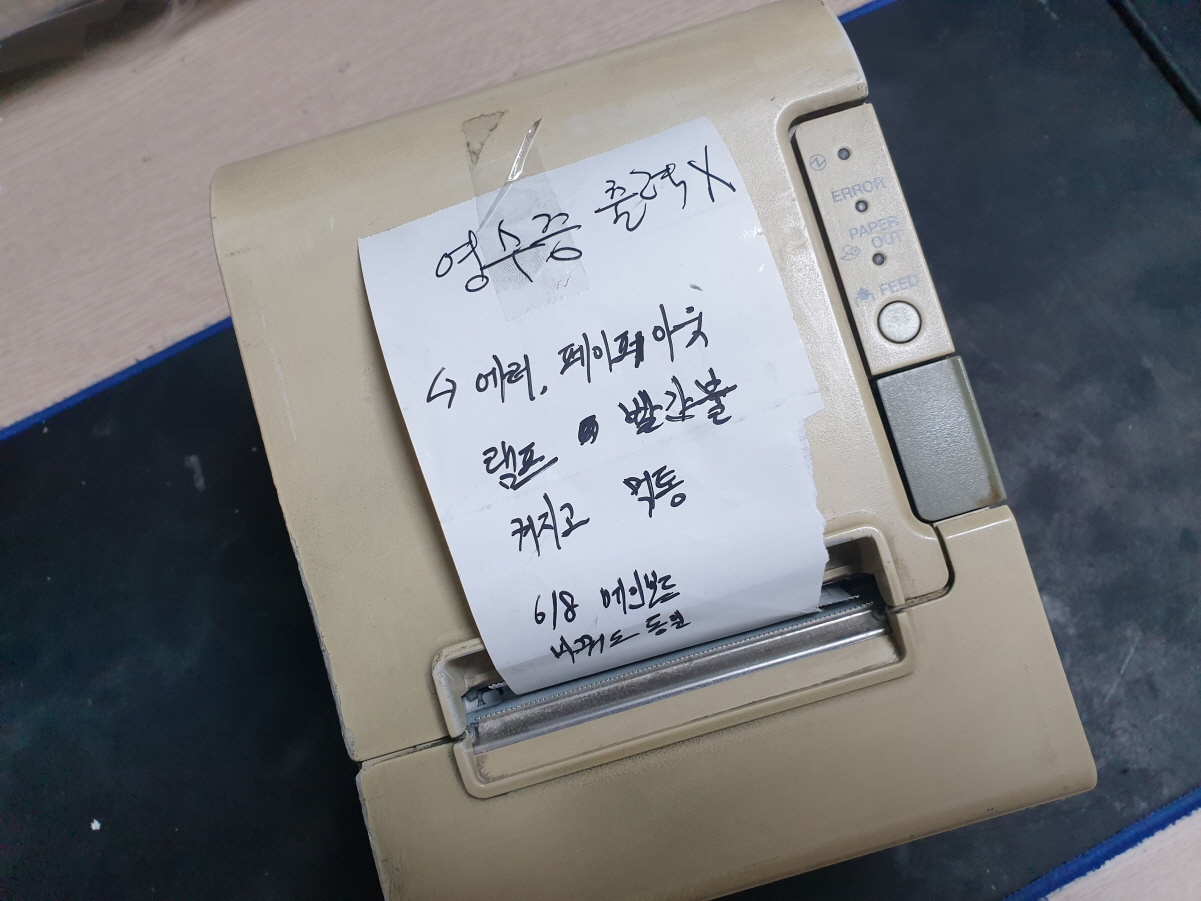 영수증 출력 X
↳ 에러, 페이퍼 아웃
램프 빨간불
켜지고 먹통
6/8 메인보드
바꿔도 동일
ERROR
PAPER
OUT
FEED